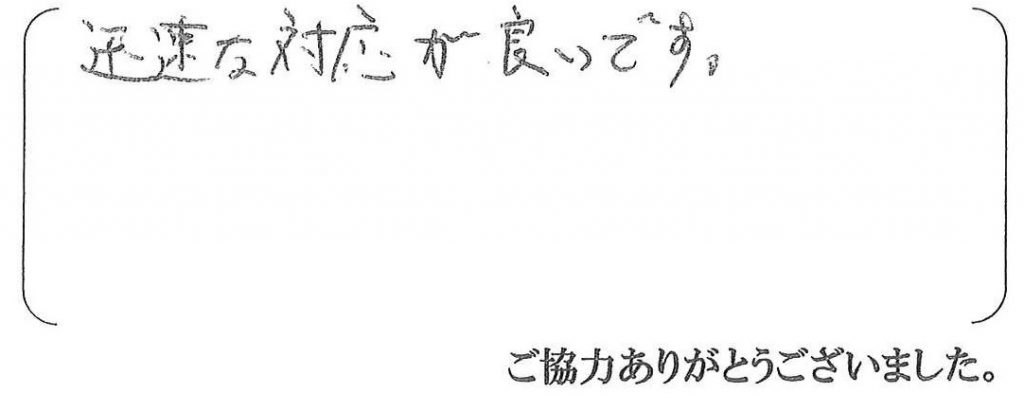 迅速な対応が良いです。
ご協力ありがとうございました。